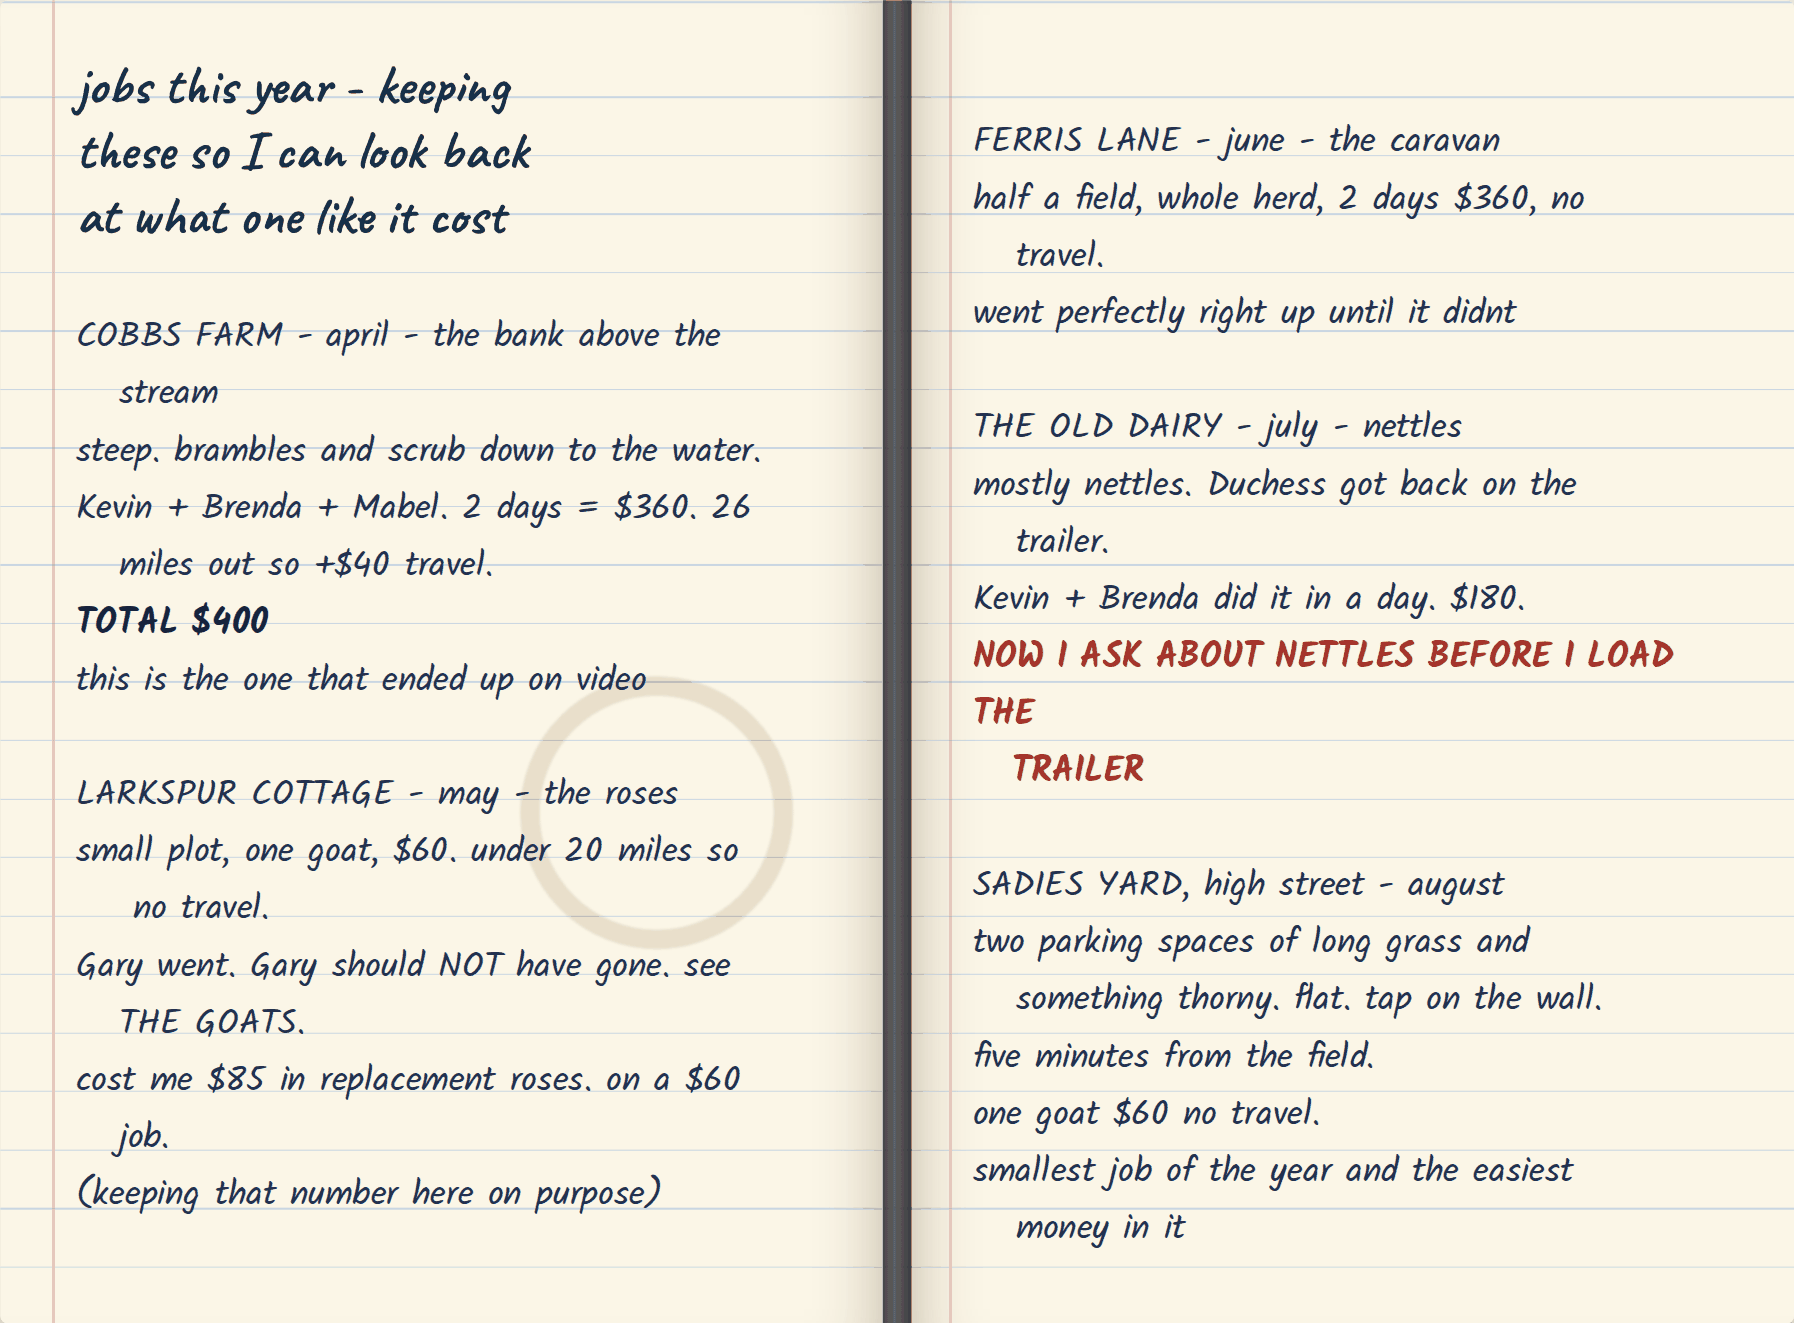 jobs this year - keeping
these so I can look back
at what one like it cost
COBBS FARM - april - the bank above the
stream
steep. brambles and scrub down to the water.
Kevin + Brenda + Mabel. 2 days = $360. 26
miles out so +$40 travel.
TOTAL $400
this is the one that ended up on video
LARKSPUR COTTAGE - may - the roses
small plot, one goat, $60. under 20 miles so
no travel.
Gary went. Gary should NOT have gone. see
THE GOATS.
cost me $85 in replacement roses. on a $60
job.
(keeping that number here on purpose)
FERRIS LANE - june - the caravan
half a field, whole herd, 2 days $360, no
travel.
went perfectly right up until it didnt
THE OLD DAIRY - july - nettles
mostly nettles. Duchess got back on the
trailer.
Kevin + Brenda did it in a day. $180.
NOW I ASK ABOUT NETTLES BEFORE I LOAD
THE
TRAILER
SADIES YARD, high street - august
two parking spaces of long grass and
something thorny. flat. tap on the wall.
five minutes from the field.
one goat $60 no travel.
smallest job of the year and the easiest
money in it